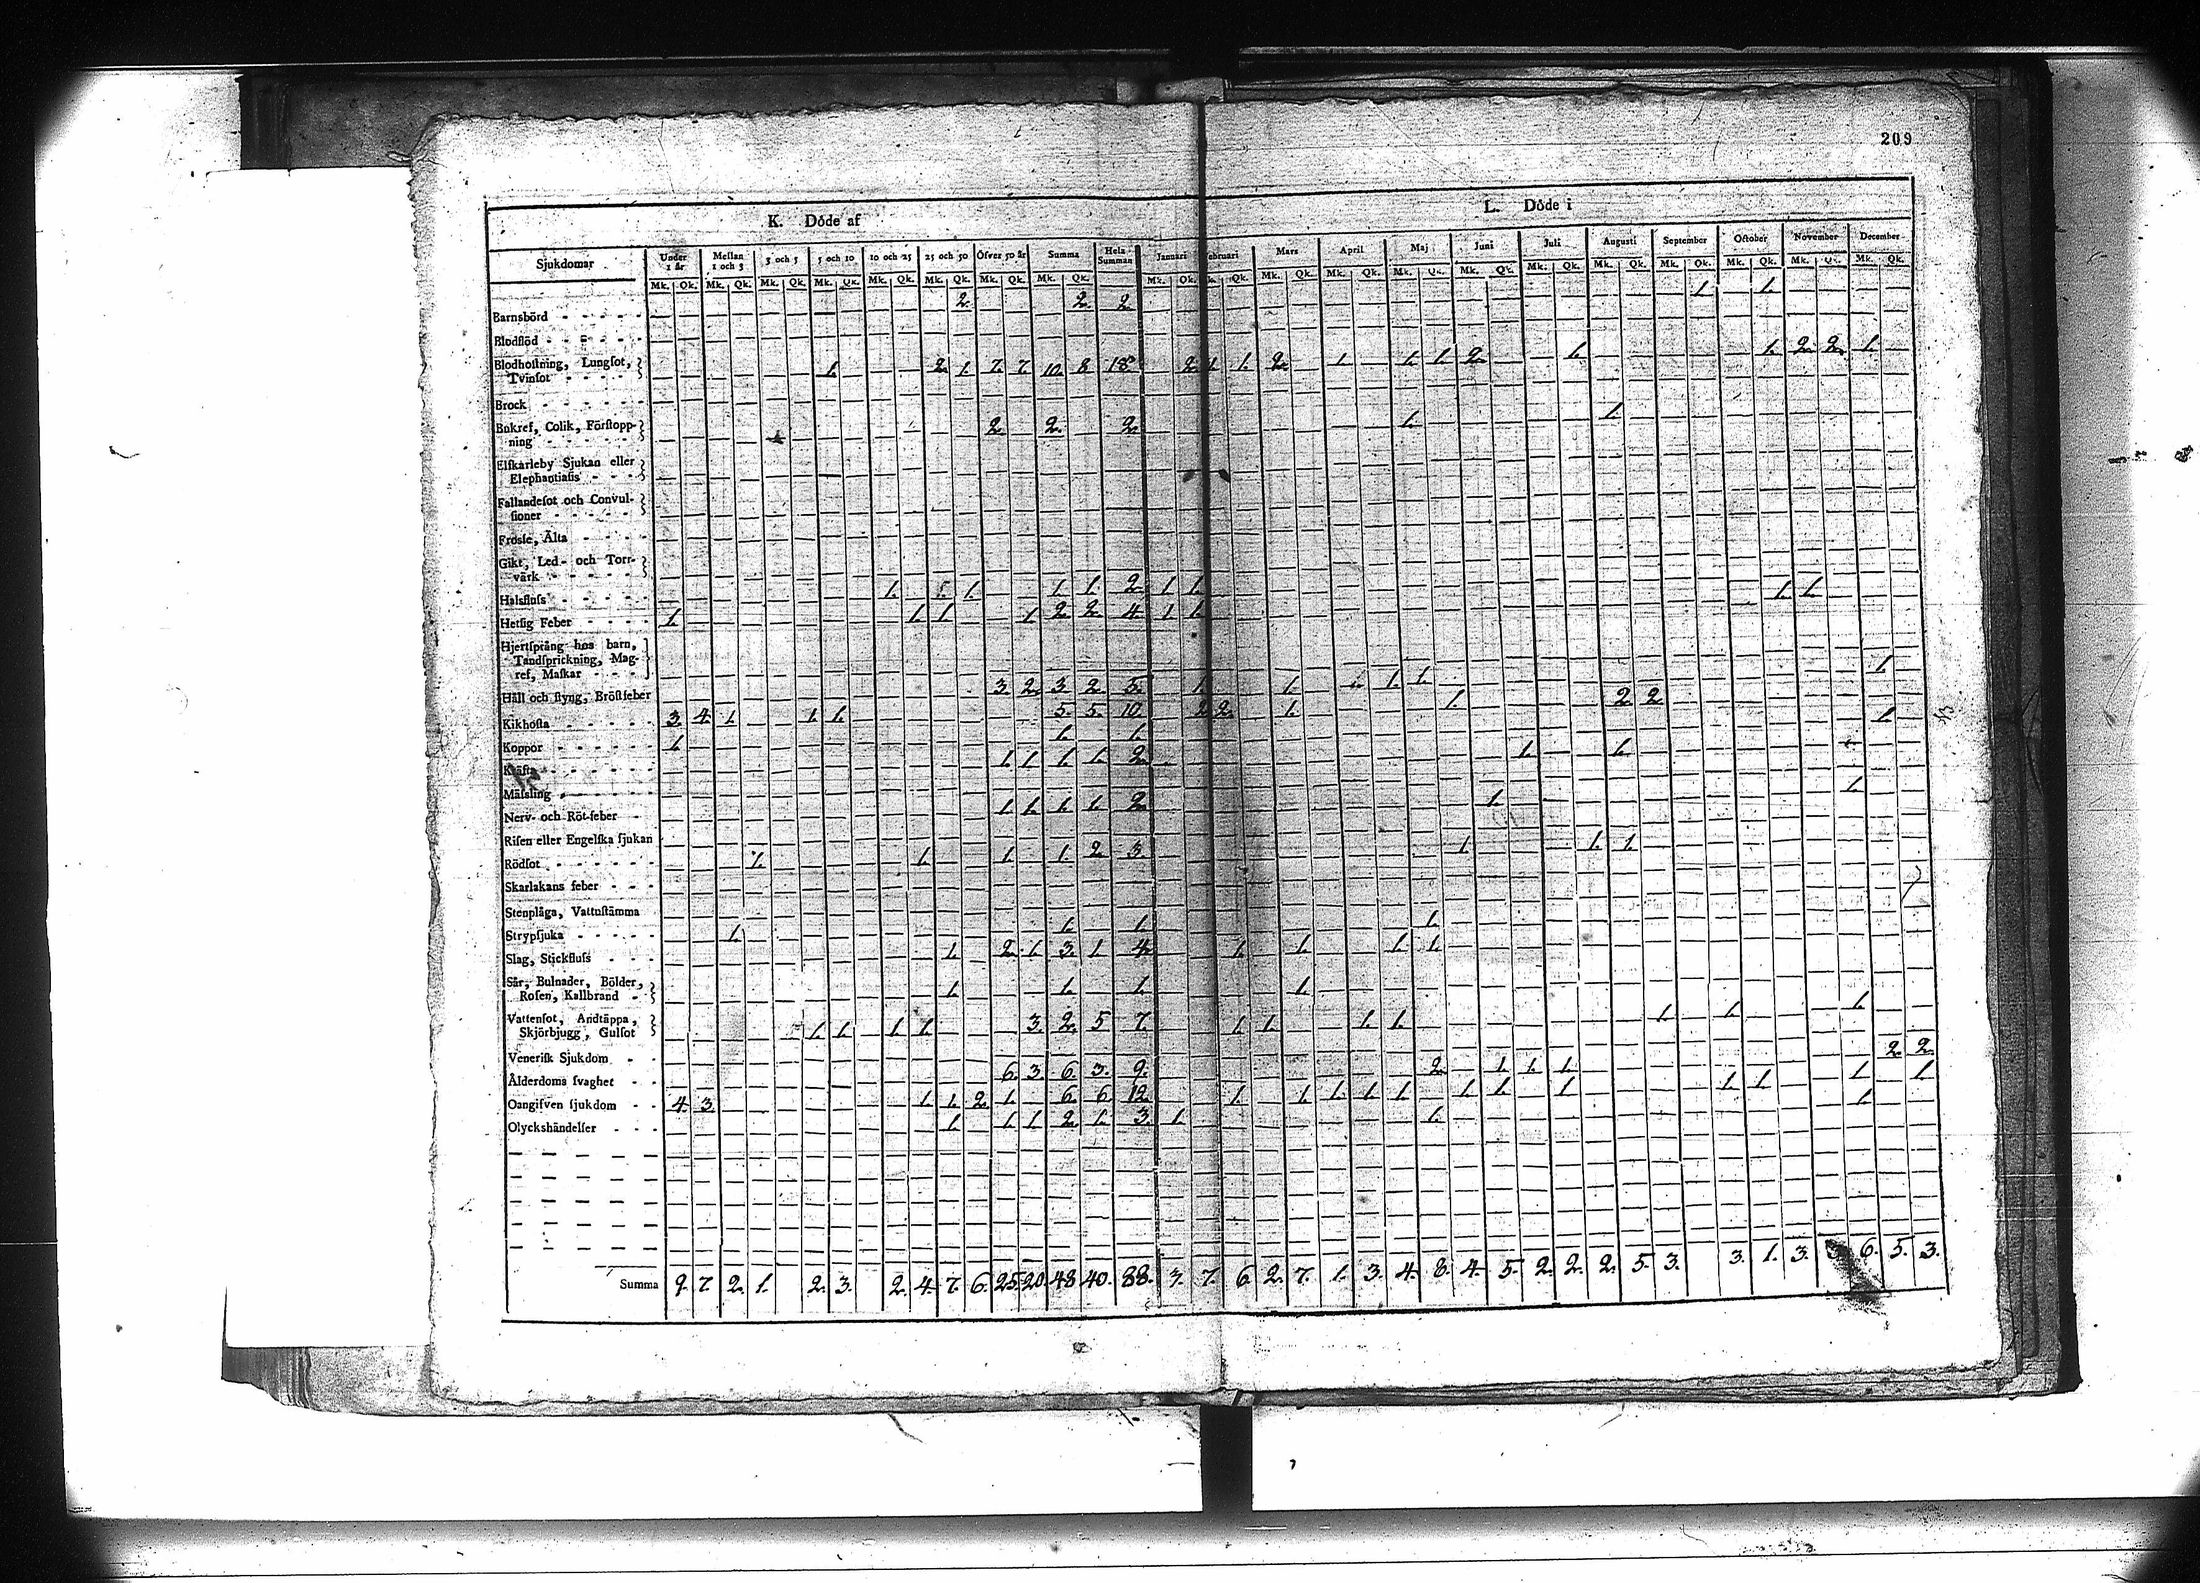 209
K. Döde af L. Döde i
Sjukdomar Under 1 år Mellan 1 och 3 3 och 5 5 och 10 10 och 25 25 och 50 Öfver 50 år Summa Hela Summan Januari Februari Mars April Maj Juni Juli Augusti September October November December
Mk. Qk. Mk. Qk. Mk. Qk. Mk. Qk. Mk. Qk. Mk. Qk. Mk. Qk. Mk. Qk. Mk. Qk. Qk. Mk. Qk. Mk. Qk. Mk. Qk. Mk. Qk. Mk. Qk. Mk. Qk. Mk. Qk. Mk. Qk. Mk. Qk. Mk. Qk.
Barnsbörd 2. 2. 2. 1. 1.
Blodflöd
Blodhostning, Lungsot,
Tvinsot 1. 2. 1. 7. 7. 10. 8. 18. 2. 1. 1. 2. 1. 1. 1. 2. 1. 1. 2. 2. 1.
Brock
Bukref, Colik, Förstopp-
ning 2. 2. 2. 1. 1.
Elfkarleby Sjukan eller
Elephantiasis
Fallandesot och Convul-
sioner
Frossa, Älta
Gikt, Led- och Torr-
värk
Halsfluss 1. 1. 1. 1. 2. 1. 1.
Hetsig Feber 1. 1. 1. 1. 2. 2. 4. 1. 1. 1. 1.
Hjertsprång hos barn,
Tandsprickning, Mag-
ref, Maskar
Håll och styng, Bröstfeber 3. 2. 3. 2. 5. 1. 1. 1. 1. 1.
Kikhosta 3. 4. 1. 1. 1. 5. 5. 10. 2. 2. 1. 1. 2. 2.
Koppor 1. 1. 1. 1.
Kräfta 1. 1. 1. 1. 2. 1. 1.
Mässling
Nerv- och Röt-feber 1. 1. 1. 1. 2. 1. 1.
Risen eller Engelska sjukan
Rödsot 1. 1. 1. 1. 2. 3. 1. 1. 1.
Skarlakans feber
Stenplåga, Vattustämma
Strypsjuka 1. 1. 1. 1.
Slag, Stickfluss 1. 2. 1. 3. 1. 4. 1. 1. 1. 1.
Sår, Bulnader, Bölder,
Rosen, Kallbrand 1. 1. 1. 1.
Vattensot, Andtäppa,
Skjörbjugg, Gulsot 1. 1. 1. 1. 3. 2. 5 7. 1. 1. 1. 1. 1. 1. 1.
Venerisk Sjukdom
Ålderdoms svaghet 6. 3. 6. 3. 9. 2. 1. 1. 1. 2. 2.
Oangifven sjukdom 4. 3. 1. 1. 2. 1. 6. 6. 12. 1. 1. 1. 1. 1. 1. 1. 1. 1. 1. 1. 1.
Olyckshändelser 1. 1. 1. 2. 1. 3. 1. 1. 1.
Summa 9. 7. 2. 1. 2. 3. 2. 4. 7. 6. 25. 20. 48 40. 88. 3. 7. 6 2. 7. 1. 3. 4. 8. 4. 5. 2. 2. 2. 5. 3. 3. 1. 3. 6. 5. 3.